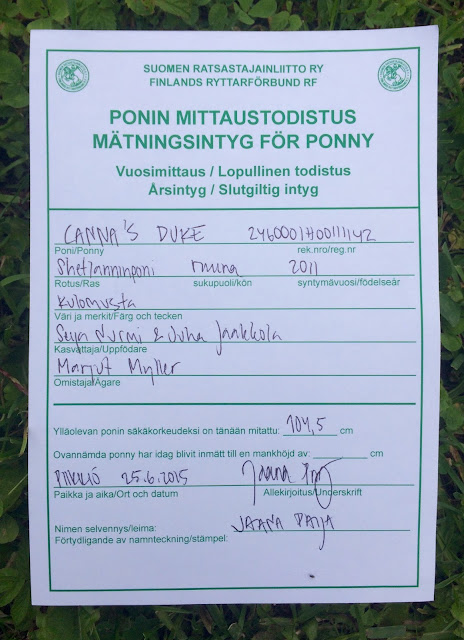 SUOMEN RATSASTAJAINLIITTO RY
FINLANDS RYTTARFÖRBUND RF
PONIN MITTAUSTODISTUS
MÄTNINGSINTYG FÖR PONNY
Vuosimittaus / Lopullinen todistus
Årsintyg / Slutgiltig intyg
CANNA'S DUKE
Poni/Ponny rek.nro/reg.nr
Shetlanninponi ruuna 2011
Rotus/Ras sukupuoli/kön syntymävuosi/födelseår
kulomusta
Väri ja merkit/Färg och tecken
Seija Nurmi & Juha Jaakkola
Kasvattaja/Uppfödare
Marjut Myller
Omistaja/Ägare
Ylläolevan ponin säkäkorkeudeksi on tänään mitattu: 104,5 cm
Ovannämda ponny har idag blivit inmätt till en mankhöjd av: cm
PIIKKIÖ 25.6.2015 Jaana
Paikka ja aika/Ort och datum Allekirjoitus/Underskrift
Nimen selvennys/leima: JAANA PATJA
Förtydligande av namnteckning/stämpel: